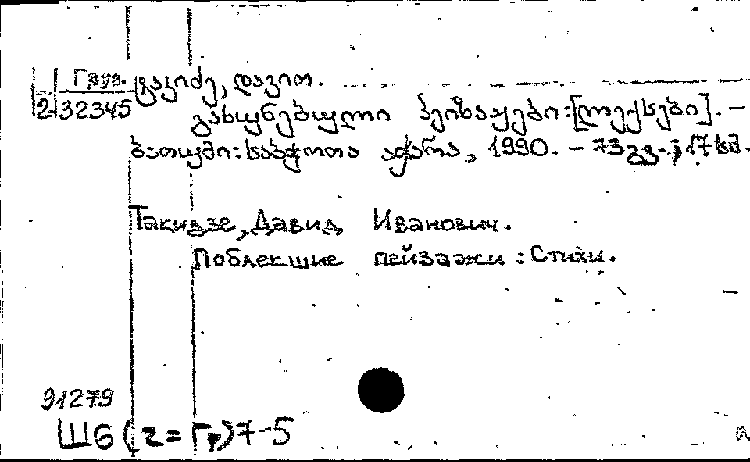 Груз. ტაკიძე, დავით.
2-32345
გახუნებული პეიზაჟები:[ლექსები]. –
ბათუმი: საბჭოთა აჭარა, 1990. – 73 გვ.; 17 სმ.
Такидзе, Давид Иванович.
Поблекшие пейзажи : Стихи.
91279
Ш6(2=Гр)7-5